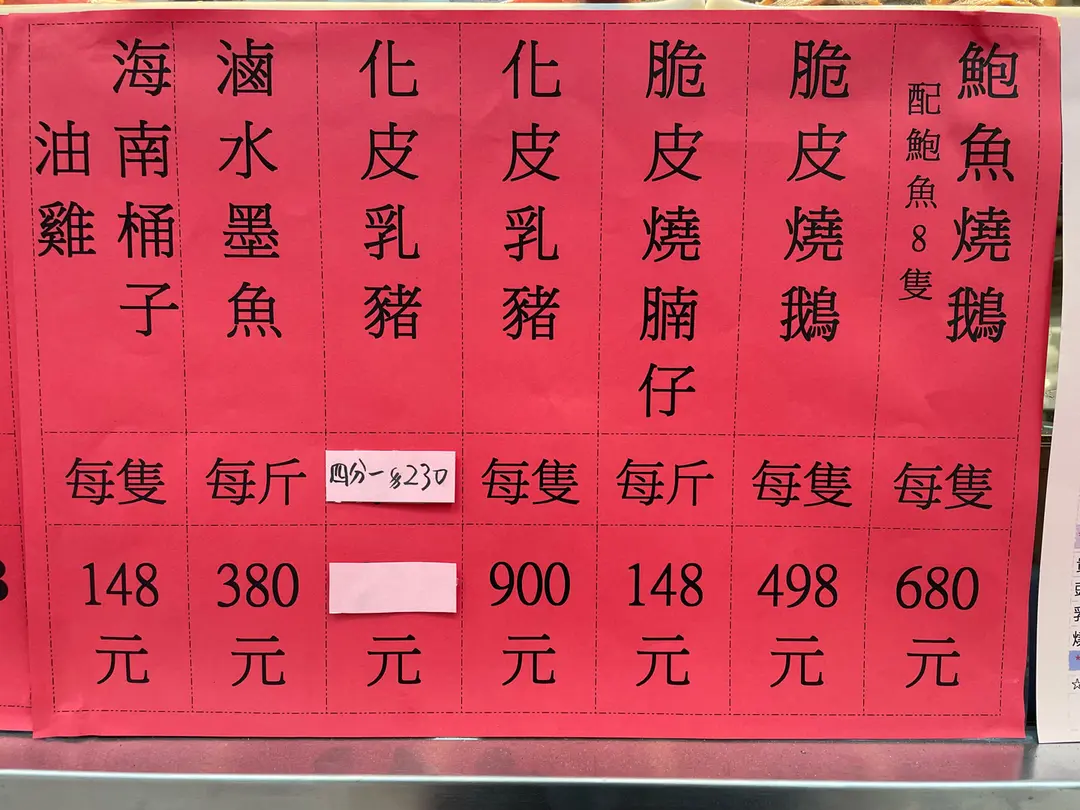 鮑魚燒鵝
配鮑魚8隻
每隻
680
元
脆皮燒鵝
每隻
498
元
脆皮燒腩仔
每斤
148
元
化皮乳豬
每隻
900
元
化皮乳豬
四分一$230
元
滷水墨魚
每斤
380
元
海南桶子
油雞
每隻
148
元